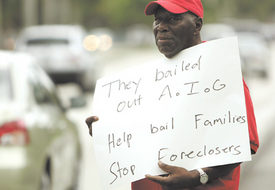 They bailed
out A.I.G
Help bail Families
Stop Foreclosers